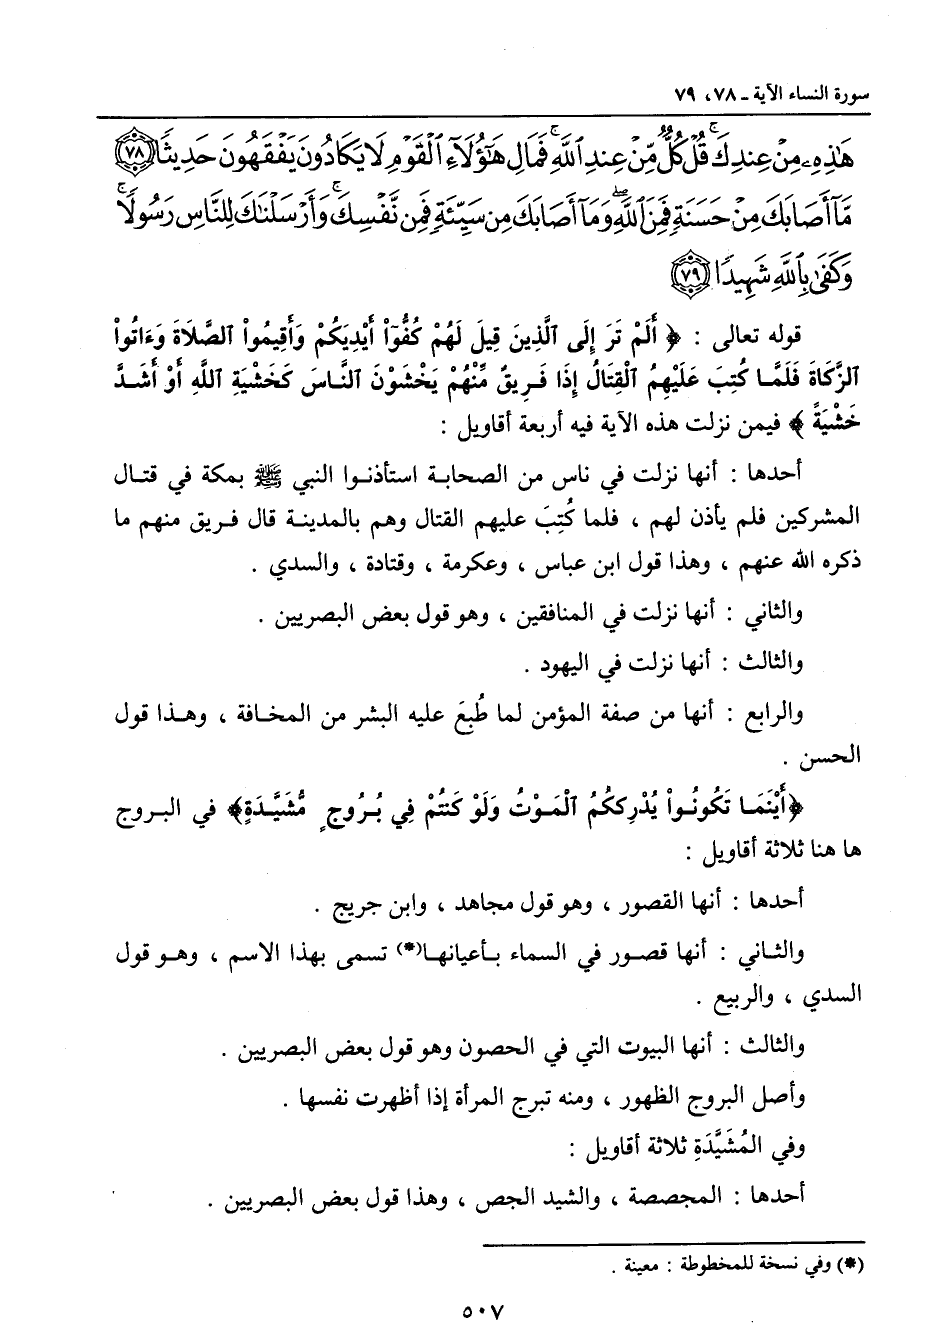 سورة النساء الآية ـ ٧٨، ٧٩
هَٰذِهِۦ مِنْ عِندِكَ ۚ قُلْ كُلٌّ مِّنْ عِندِ ٱللَّهِ ۖ فَمَالِ هَٰٓؤُلَآءِ ٱلْقَوْمِ لَا يَكَادُونَ يَفْقَهُونَ حَدِيثًا ﴿٧٨﴾
مَّآ أَصَابَكَ مِنْ حَسَنَةٍ فَمِنَ ٱللَّهِ ۖ وَمَآ أَصَابَكَ مِن سَيِّئَةٍ فَمِن نَّفْسِكَ ۚ وَأَرْسَلْنَٰكَ لِلنَّاسِ رَسُولًا ۚ
وَكَفَىٰ بِٱللَّهِ شَهِيدًا ﴿٧٩﴾
قوله تعالى : ﴿ أَلَمْ تَرَ إِلَى ٱلَّذِينَ قِيلَ لَهُمْ كُفُّوٓاْ أَيْدِيَكُمْ وَأَقِيمُواْ ٱلصَّلَاةَ وَءَاتُواْ
ٱلزَّكَاةَ فَلَمَّا كُتِبَ عَلَيْهِمُ ٱلْقِتَالُ إِذَا فَرِيقٌ مِّنْهُمْ يَخْشَوْنَ ٱلنَّاسَ كَخَشْيَةِ ٱللَّهِ أَوْ أَشَدَّ
خَشْيَةً ﴾ فيمن نزلت هذه الآية فيه أربعة أقاويل :
أحدها : أنها نزلت في ناس من الصحابة استأذنوا النبي ﷺ بمكة في قتال
المشركين فلم يأذن لهم ، فلما كُتِبَ عليهم القتال وهم بالمدينة قال فريق منهم ما
ذكره الله عنهم ، وهذا قول ابن عباس ، وعكرمة ، وقتادة ، والسدي .
والثاني : أنها نزلت في المنافقين ، وهو قول بعض البصريين .
والثالث : أنها نزلت في اليهود .
والرابع : أنها من صفة المؤمن لما طُبِعَ عليه البشر من المخافة ، وهذا قول
الحسن .
﴿أَيْنَمَا تَكُونُواْ يُدْرِككُّمُ ٱلْمَوْتُ وَلَوْ كُنتُمْ فِي بُرُوجٍ مُّشَيَّدَةٍ﴾ في البروج
ها هنا ثلاثة أقاويل :
أحدها : أنها القصور ، وهو قول مجاهد ، وابن جريج .
والثاني : أنها قصور في السماء بأعيانها(*) تسمى بهذا الاسم ، وهو قول
السدي ، والربيع .
والثالث : أنها البيوت التي في الحصون وهو قول بعض البصريين .
وأصل البروج الظهور ، ومنه تبرج المرأة إذا أظهرت نفسها .
وفي المُشَيَّدَةِ ثلاثة أقاويل :
أحدها : المجصصة ، والشيد الجص ، وهذا قول بعض البصريين .
(*) وفي نسخة للمخطوطة : معينة .
٥٠٧